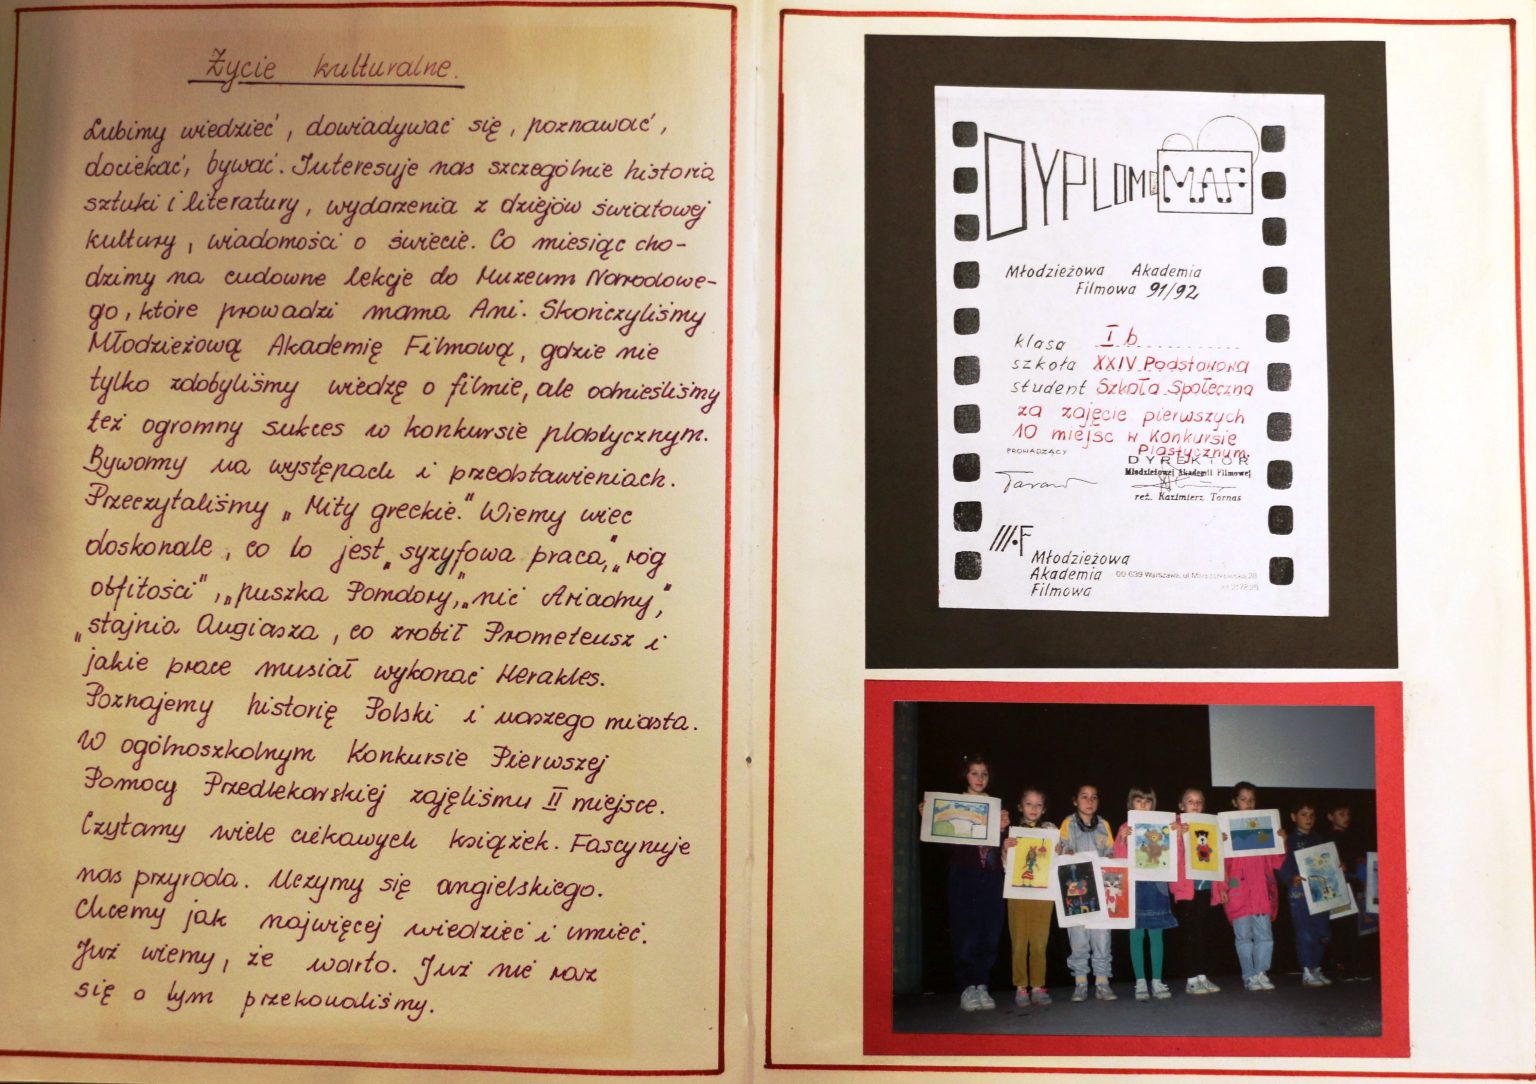 Życie kulturalne.
Lubimy wiedzieć, dowiadywać się, poznawać,
dociekać, bywać. Interesuje nas szczególnie historia
sztuki i literatury, wydarzenia z dziejów światowej
kultury, wiadomości o świecie. Co miesiąc cho-
dzimy na cudowne lekcje do Muzeum Narodowe-
go, które prowadzi mama Ani. Skończyliśmy
Młodzieżową Akademię Filmową, gdzie nie
tylko zdobyliśmy wiedzę o filmie, ale odnieśliśmy
też ogromny sukces w konkursie plastycznym.
Bywamy na występach i przedstawieniach.
Przeczytaliśmy „Mity greckie." Wiemy wiec
doskonale, co to jest „syzyfowa praca," „róg
obfitości", „puszka Pandory," „nić Ariadny,"
„stajnia Augiasza, co zrobił Prometeusz i
jakie prace musiał wykonać Herakles.
Poznajemy historię Polski i naszego miasta.
W ogólnoszkolnym Konkursie Pierwszej
Pomocy Przedlekarskiej zajęliśmy II miejsce.
Czytamy wiele ciekawych książek. Fascynuje
nas przyroda. Uczymy się angielskiego.
Chcemy jak najwięcej wiedzieć i umieć.
Już wiemy, że warto. Już nie raz
się o tym przekonaliśmy.
DYPLOM MAF
Młodzieżowa Akademia
Filmowa 91/92
klasa I b
szkoła XXIV Podstawowa
student Szkoła Społeczna
za zajęcie pierwszych
10 miejsc w Konkursie
Plastycznum
PROWADZĄCY
DYREKTOR
Młodzieżowej Akademii Filmowej
reż. Kazimierz Tarnas
Młodzieżowa
Akademia 00-639 Warszawa, ul.
Filmowa